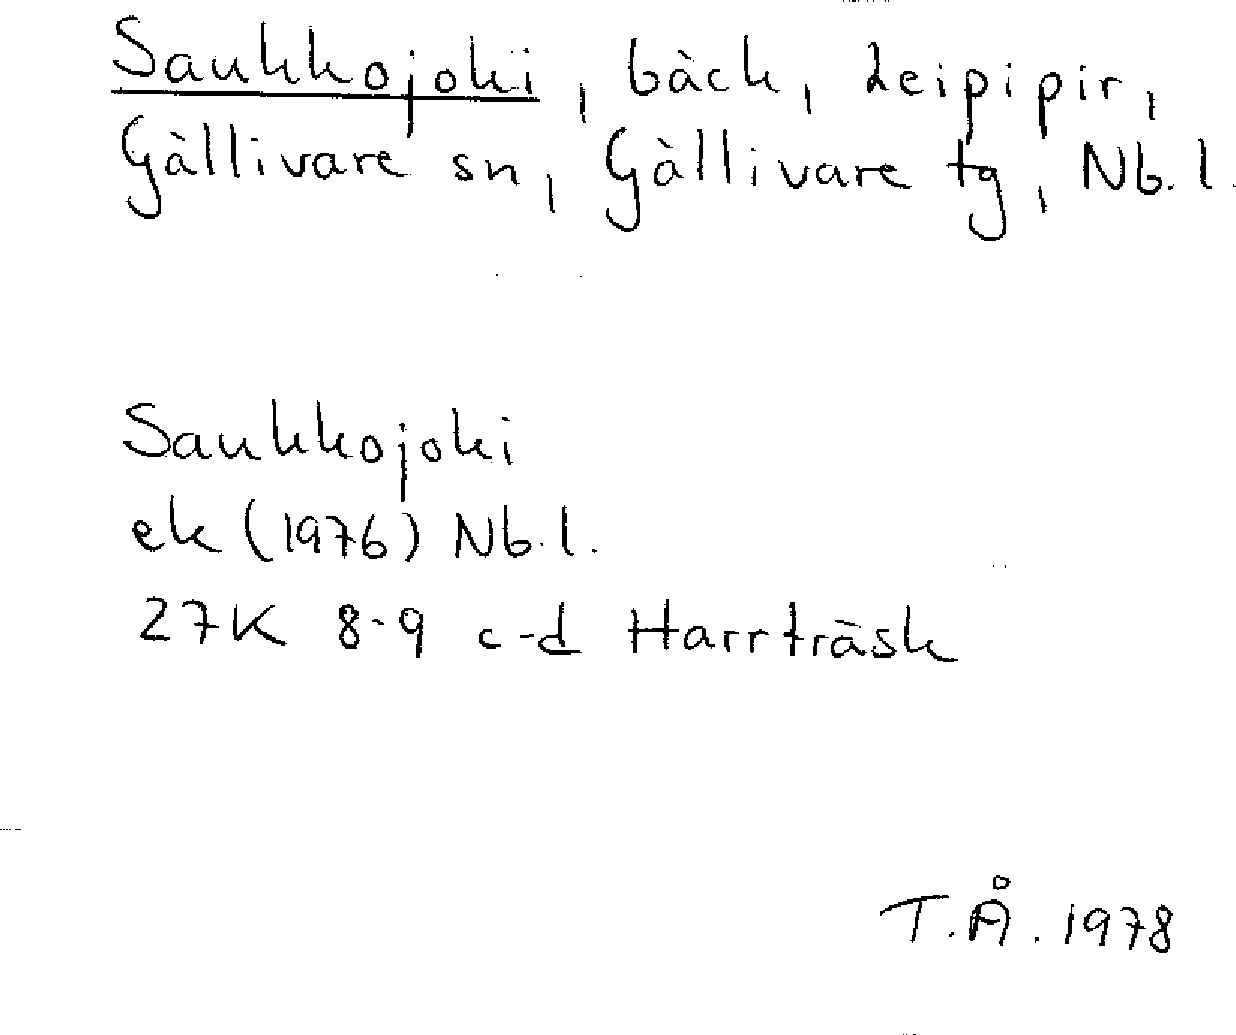 Saukkojoki, bäck, Leipipir,
Gällivare sn, Gällivare tg, Nb.l.
Saukkojoki
ek (1976) Nb.l.
27K 8-9 c-d Harrträsk
T.Å. 1978